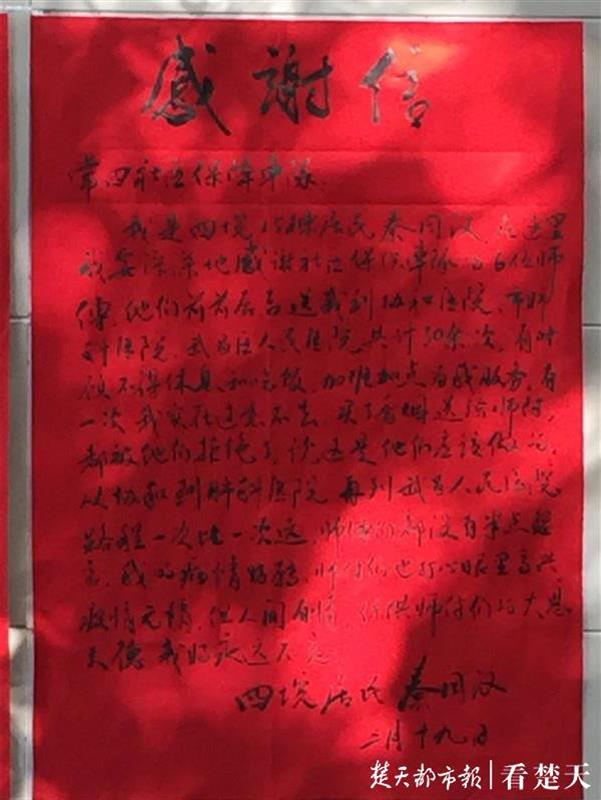 感谢信
常四社区保障车队
我是四境 居民秦同汉,在这里
我要深深地感谢社区保供车队的各位师
傅,他们前前后后送我到协和医院、市肺
科医院、武昌区人民医院共计30余次,有时
顾不得休息和吃饭,加班加点为我服务,有
一次我实在过意不去,买了香烟送给师傅,
都被他们拒绝了,说这是他们应该做的,
从协和到肺科医院再到武昌人民医院
路程一次比一次远,师傅们都没有半点怨
言,我的病情好转,师傅们也打心眼里高兴
疫情无情,但人间有情,保供师付们的大恩
大德我将永远不忘
四境居民秦同汉
二月十九日
楚天都市报 看楚天